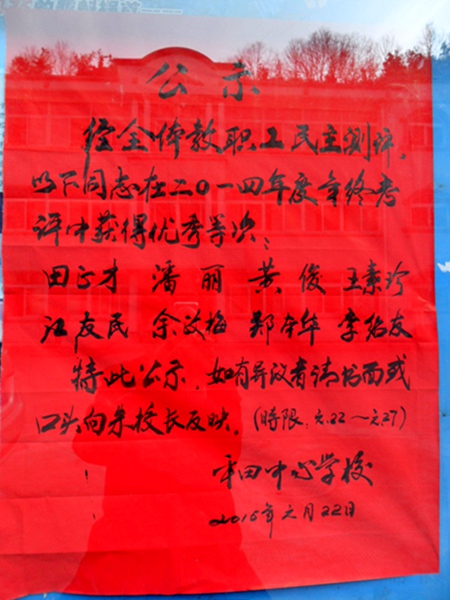 公示
经全体教职工民主测评，
以下同志在二〇一四年度年终考
评中获得优秀等次：
田正才 潘丽 黄俊 王素珍
江友民 余汝梅 郑本华 李绍友
特此公示，如有异议者请书面或
口头向朱校长反映。(時限：元.22～元.27)
平田中心学校
2015年元月22日